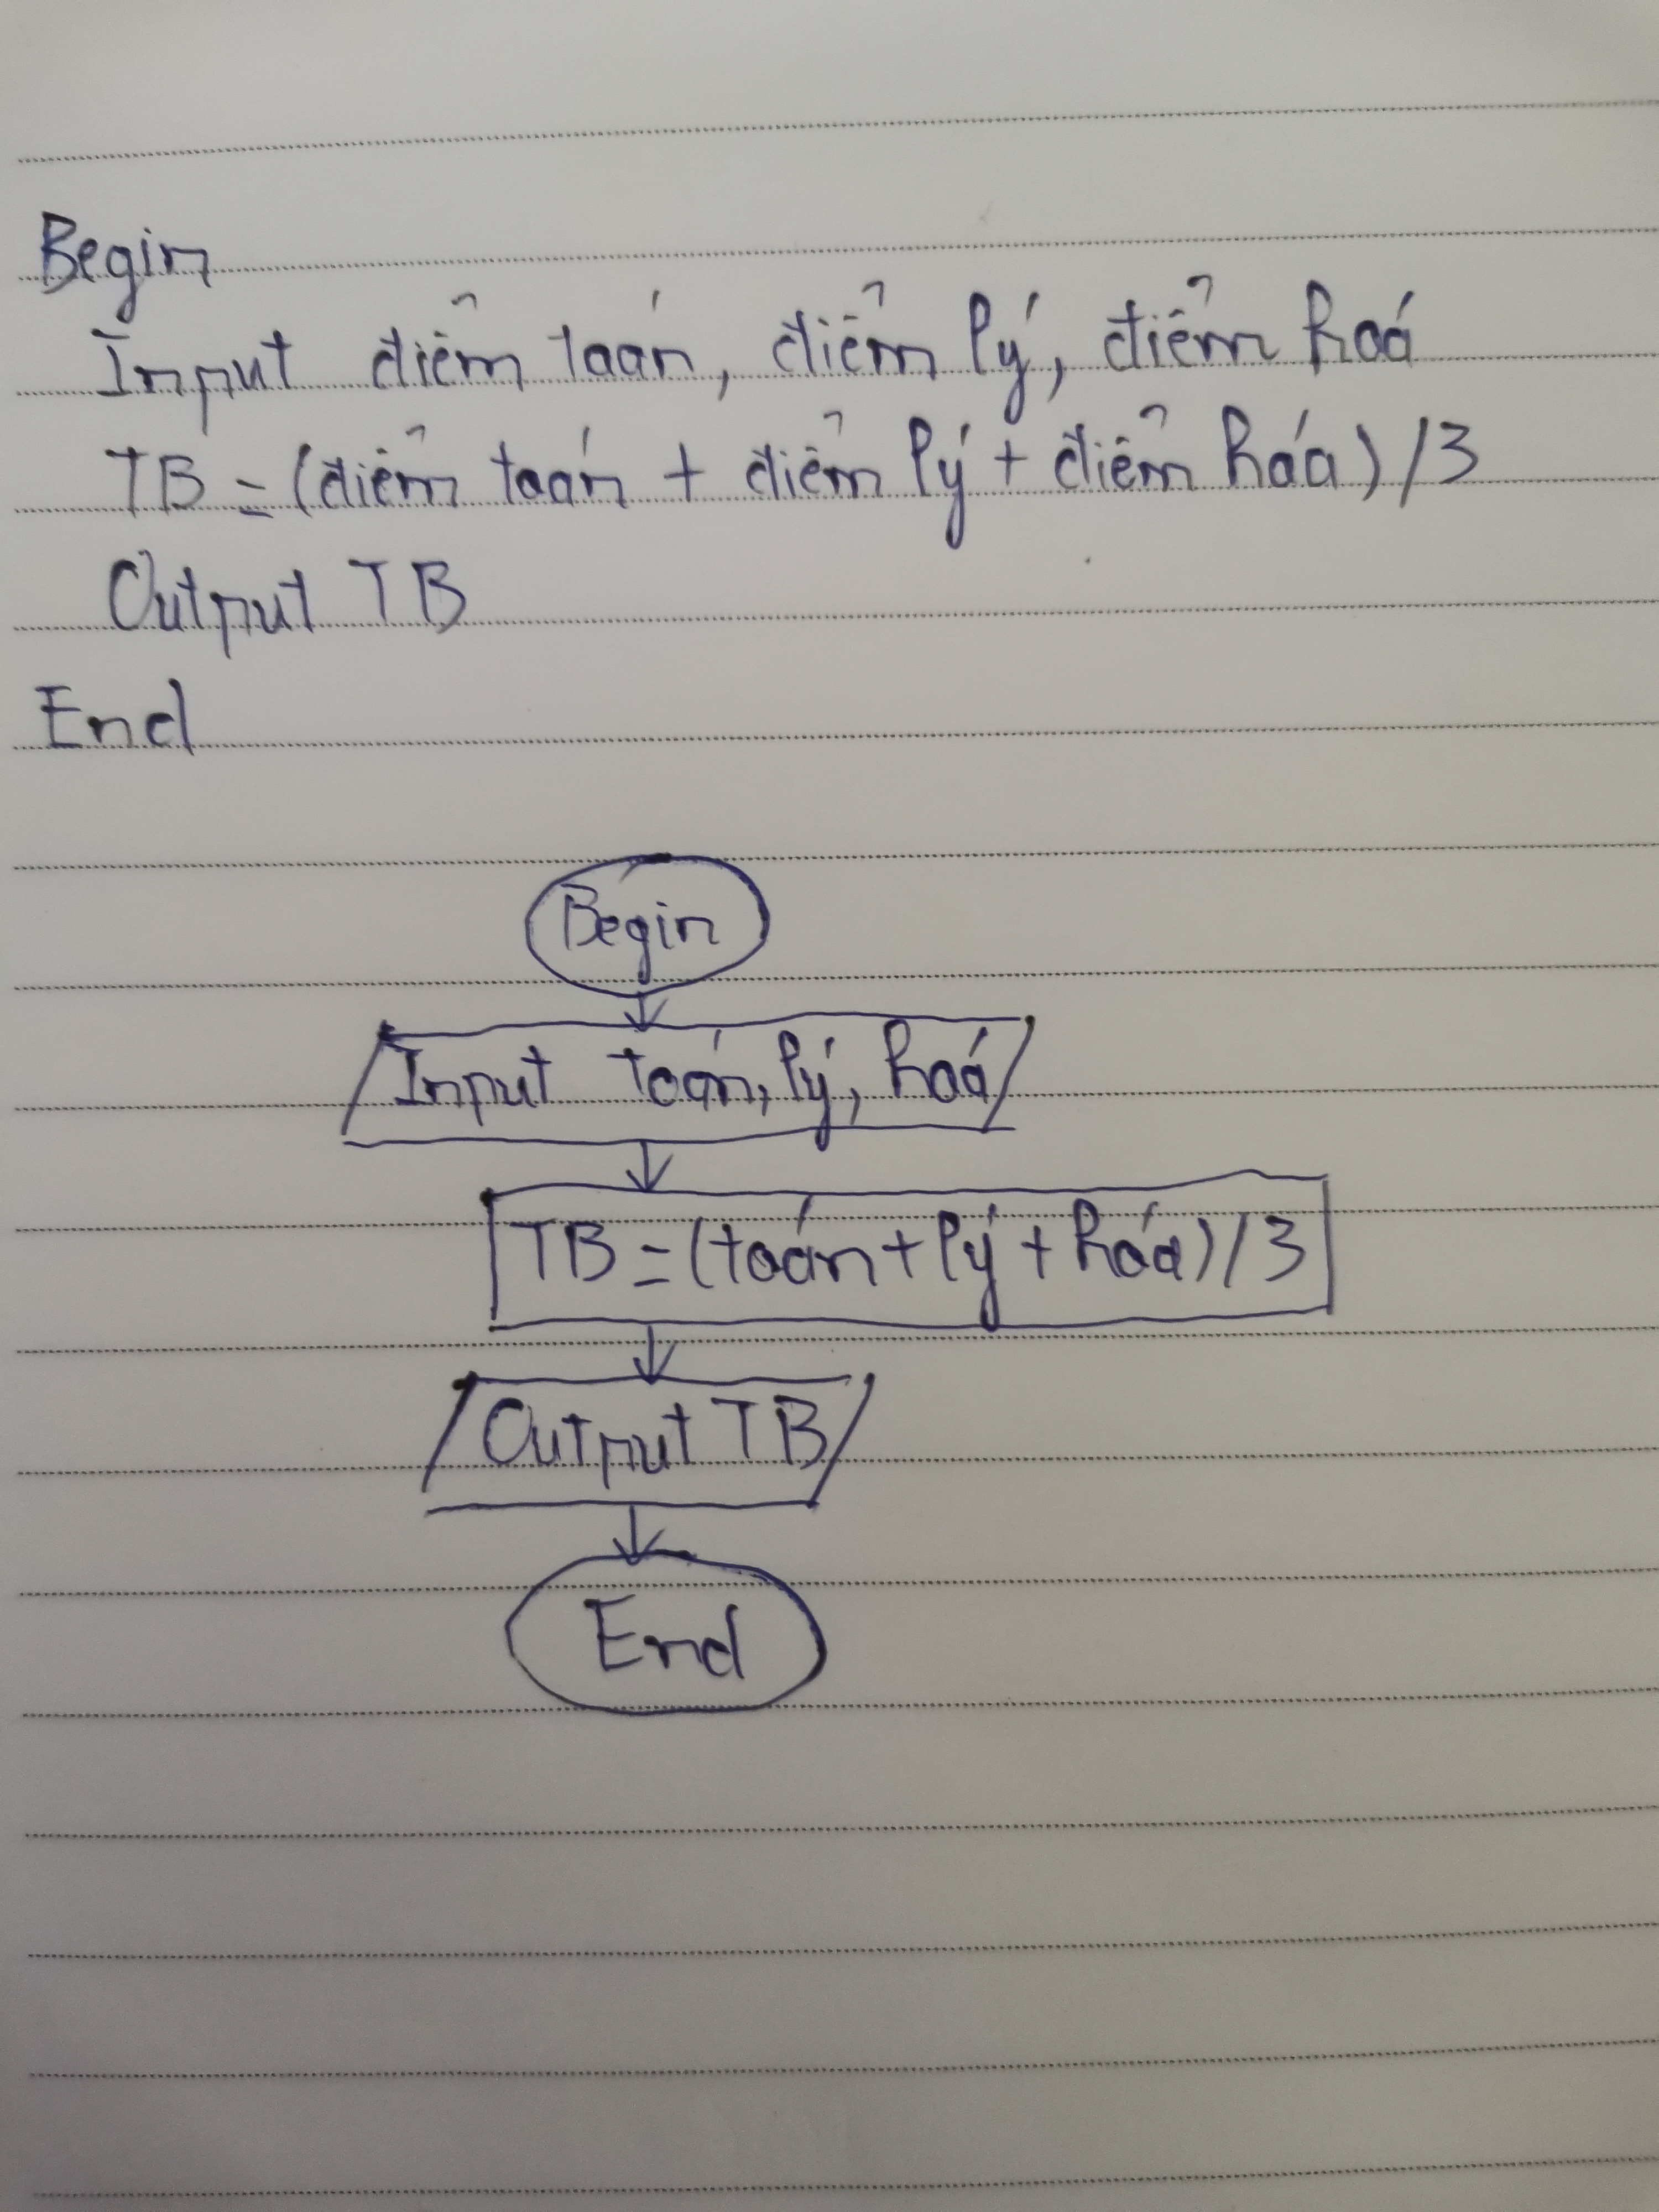 Begin
Input điểm toán, điểm lý, điểm hoá
TB = (điểm toán + điểm lý + điểm hóa) / 3
Output TB
End
Begin
Input toán, lý, hoá
TB = (toán + lý + hóa) / 3
Output TB
End